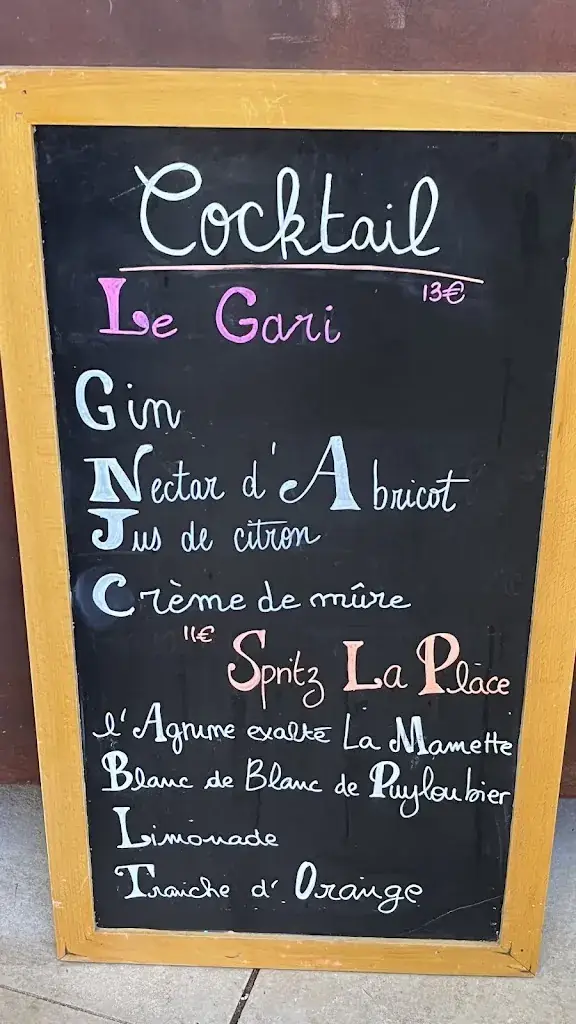 Cocktail
13€
Le Gari
Gin
Nectar d'Abricot
Jus de citron
Crème de mûre
11€
Spritz La Place
l'Agrume exalté La Mamette
Blanc de Blanc de Puyloubier
Limonade
Traiche d'Orange